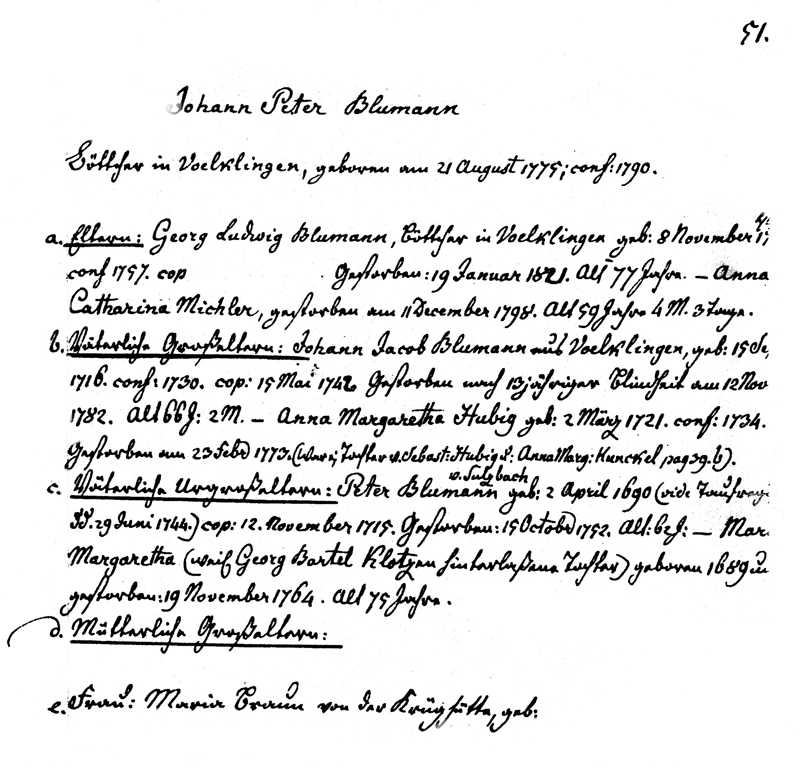 51.
Johann Peter Blumann
Böttcher in Voelklingen, geboren am 21 August 1775; conf: 1790.
a. Eltern: Georg Ludwig Blumann, Böttcher in Voelklingen geb: 8 November 1
conf 1757. cop Gestorben: 19 Januar 1821. Alt 77 Jahre. – Anna
Catharina Michler, gestorben am 11 December 1798. Alt 59 Jahre 4 M. 3 Tage.
b. Väterliche Großeltern: Johann Jacob Blumann aus Voelklingen, geb: 15 Se,
1716. conf: 1730. cop: 15 Mai 1742 Gestorben nach 13jähriger Blindheit am 12 Nov
1782. Alt 66 J: 2 M. – Anna Margaretha Hubig geb: 2 März 1721. conf: 1734.
Gestorben am 23 Febr 1773. (Tochter v. Sebast: Hubig & Anna Marg: Kunckel pag 39. b).
v. Sulzbach
c. Väterliche Urgroßeltern: Peter Blumann geb: 2 April 1690 (vide Taufregi
29 Juni 1744.) cop: 12. November 1715. Gestorben: 15 Octobr 1752. Alt: 62 J: – Mar
Margaretha (weil Georg Bartel Klotzen hinterlaßene Tochter) geboren 1689 u
gestorben: 19 November 1764. Alt 75 Jahre.
d. Mütterliche Großeltern:
e. Frau: Maria Braun von der Krüghütte, geb: